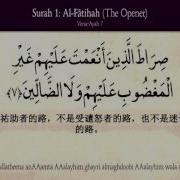 Surah 1: Al-Fātihah (The Opener)
Verse/Ayah 7
صِرَاطَ الَّذِينَ أَنْعَمْتَ عَلَيْهِمْ غَيْرِ
الْمَغْضُوبِ عَلَيْهِمْ وَلَا الضَّالِّينَ ﴿٧﴾
祐助者的路，不是受譴怒者的路，也不是迷
的路。
allatheena anAAamta AAalayhim ghayri almaghdoobi AAalayhim wala a